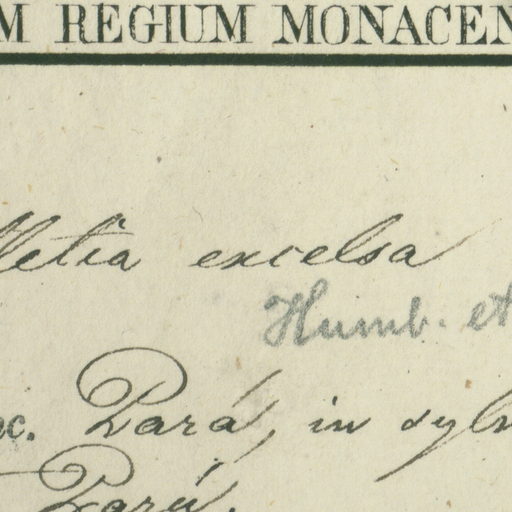 M REGIUM MONACEN
lletia excelsa
Humb. et
nc. Pará, in sylv
Pará.